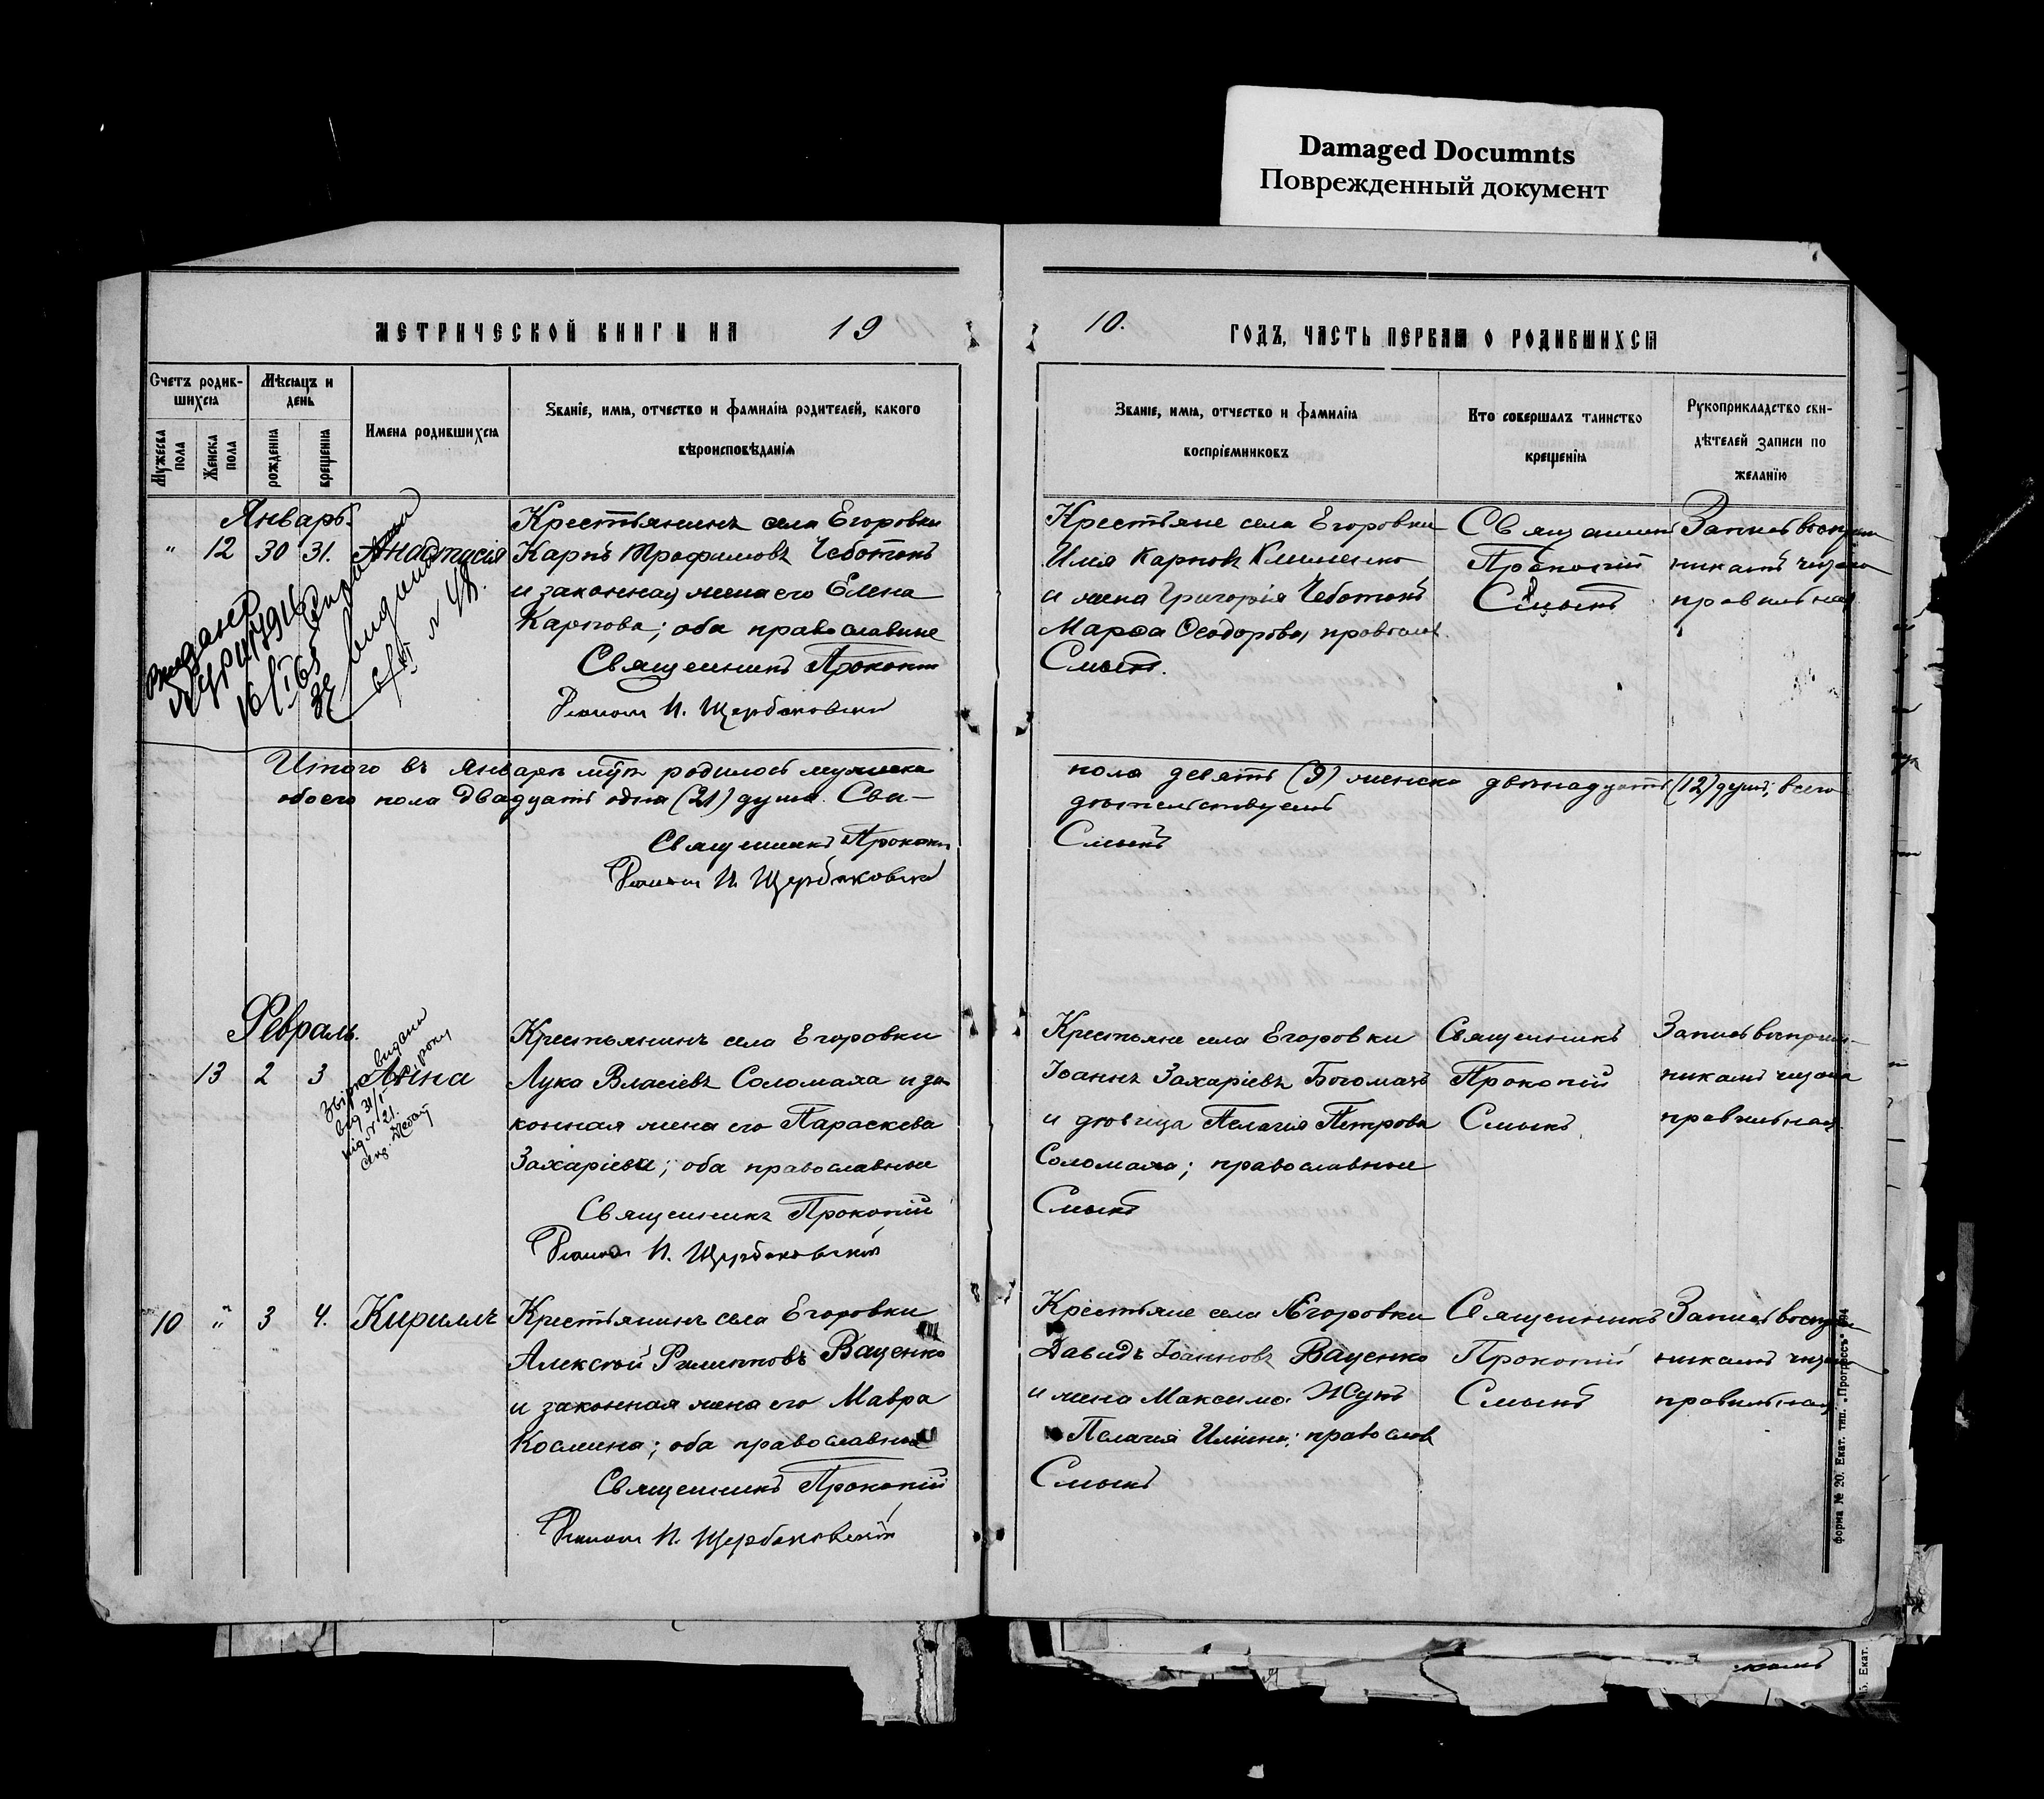 Damaged Documnts
Поврежденный документ
МЕТРИЧЕСКОЙ КНИГИ НА 19
10. ГОДЪ, ЧАСТЬ ПЕРВАЯ О РОДИВШИХСЯ
Счетъ родив-
шихся
Мужеска пола
Женска пола
Мѣсяцъ и
день
рожденія
крещенія
Имена родившихся
Званіе, имя, отчество и фамилія родителей, какого
вѣроисповѣданія
Званіе, имя, отчество и фамилія
воспріемниковъ
Кто совершалъ таинство
крещенія
Рукоприкладство сви-
дѣтелей записи по
желанію
Январь.
" 12 30 31. Анастасія
Крестьянинъ села Егоровки
Карпъ Трофимовъ Чеботокъ
и законная жена его Елена
Карпова; оба православные
Священникъ Прокопій
Псаломщ И. Щербаковскій
Крестьяне села Егоровки
Илія Карповъ Клименко
и жена Григорія Чеботокъ
Марѳа Ѳеодорова, православ.
Смыкъ.
Священникъ
Прокопій
Смыкъ
Запись воспріем
никамъ читана
правильная
Итого въ Январѣ мцѣ родилось мужеска
обоего пола двадцать одна (21) душа. Сви-
Священникъ Прокопій
Псаломщ И. Щербаковскій
пола девять (9) женска двѣнадцать (12) душъ; всего
дѣтельствуемъ
Смыкъ
Февраль.
13 2 3 Анна
31/
№ 21.
Крестьянинъ села Егоровки
Лука Власіевъ Соломаха и за
конная жена его Параскева
Захаріева; оба православные
Священникъ Прокопій
Псаломщ И. Щербаковскій
Крестьяне села Егоровки
Іоаннъ Захаріевъ Богомазъ
и дѣвица Пелагія Петрова
Соломаха; православные
Смыкъ
Священникъ
Прокопій
Смыкъ.
Запись воспріем-
никамъ читана
правильная
10 " 3 4. Кириллъ
Крестьянинъ села Егоровки
Алексѣй Филипповъ Ваценко
и законная жена его Мавра
Космина; оба православные
Священникъ Прокопій
Псаломщ И. Щербаковскій
Крестьяне села Егоровки
Давидъ Іоанновъ Ваценко
и жена Максима Жукъ
Пелагія Ильина; православ
Смыкъ
Священникъ
Прокопій
Смыкъ
Запись воспріем
никамъ читана
правильная
форма № 20. Екат. тип. „Прогрессъ“
Екат.